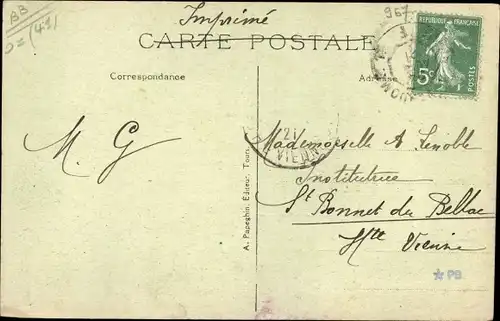 BB
Imprimé
967
CARTE POSTALE
REPUBLIQUE FRANÇAISE
5c
POSTES
Correspondance
Adresse
M. G
21
VIENNE
Mademoiselle A Lenoble
Institutrice
St Bonnet de Bellac
Hte Vienne
A. Papeghin, Editeur, Tours
PB